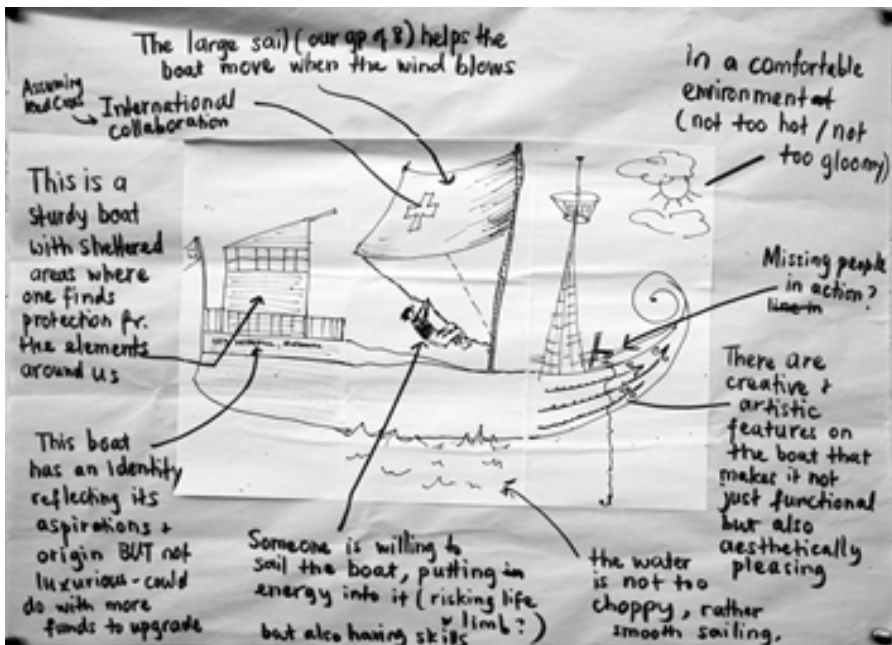 The large sail (our gp of 8) helps the
boat move when the wind blows
Assuming
International
collaboration
in a comfortable
environment
(not too hot / not
too gloomy)
This is a
sturdy boat
with sheltered
areas where
one finds
protection fr.
the elements
around us
Missing people
in action?
There are
creative +
artistic
features on
the boat that
makes it not
just functional
but also
aesthetically
pleasing
This boat
has an identity
reflecting its
aspirations +
origin BUT not
luxurious - could
do with more
funds to upgrade
Someone is willing to
sail the boat, putting
energy into it (risking life
& limb?)
but also having skills
the water
is not too
choppy, rather
smooth sailing.